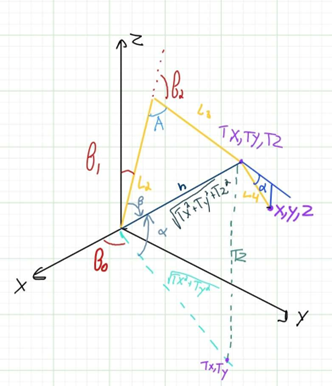 Z
β₂
L₃
A
TX,TY,TZ
β₁
L₂
B
h
√TX²+TY²+TZ²
α
L4
X,Y,Z
α
β₀
TZ
X
√TX²+TY²
Y
TX,TY